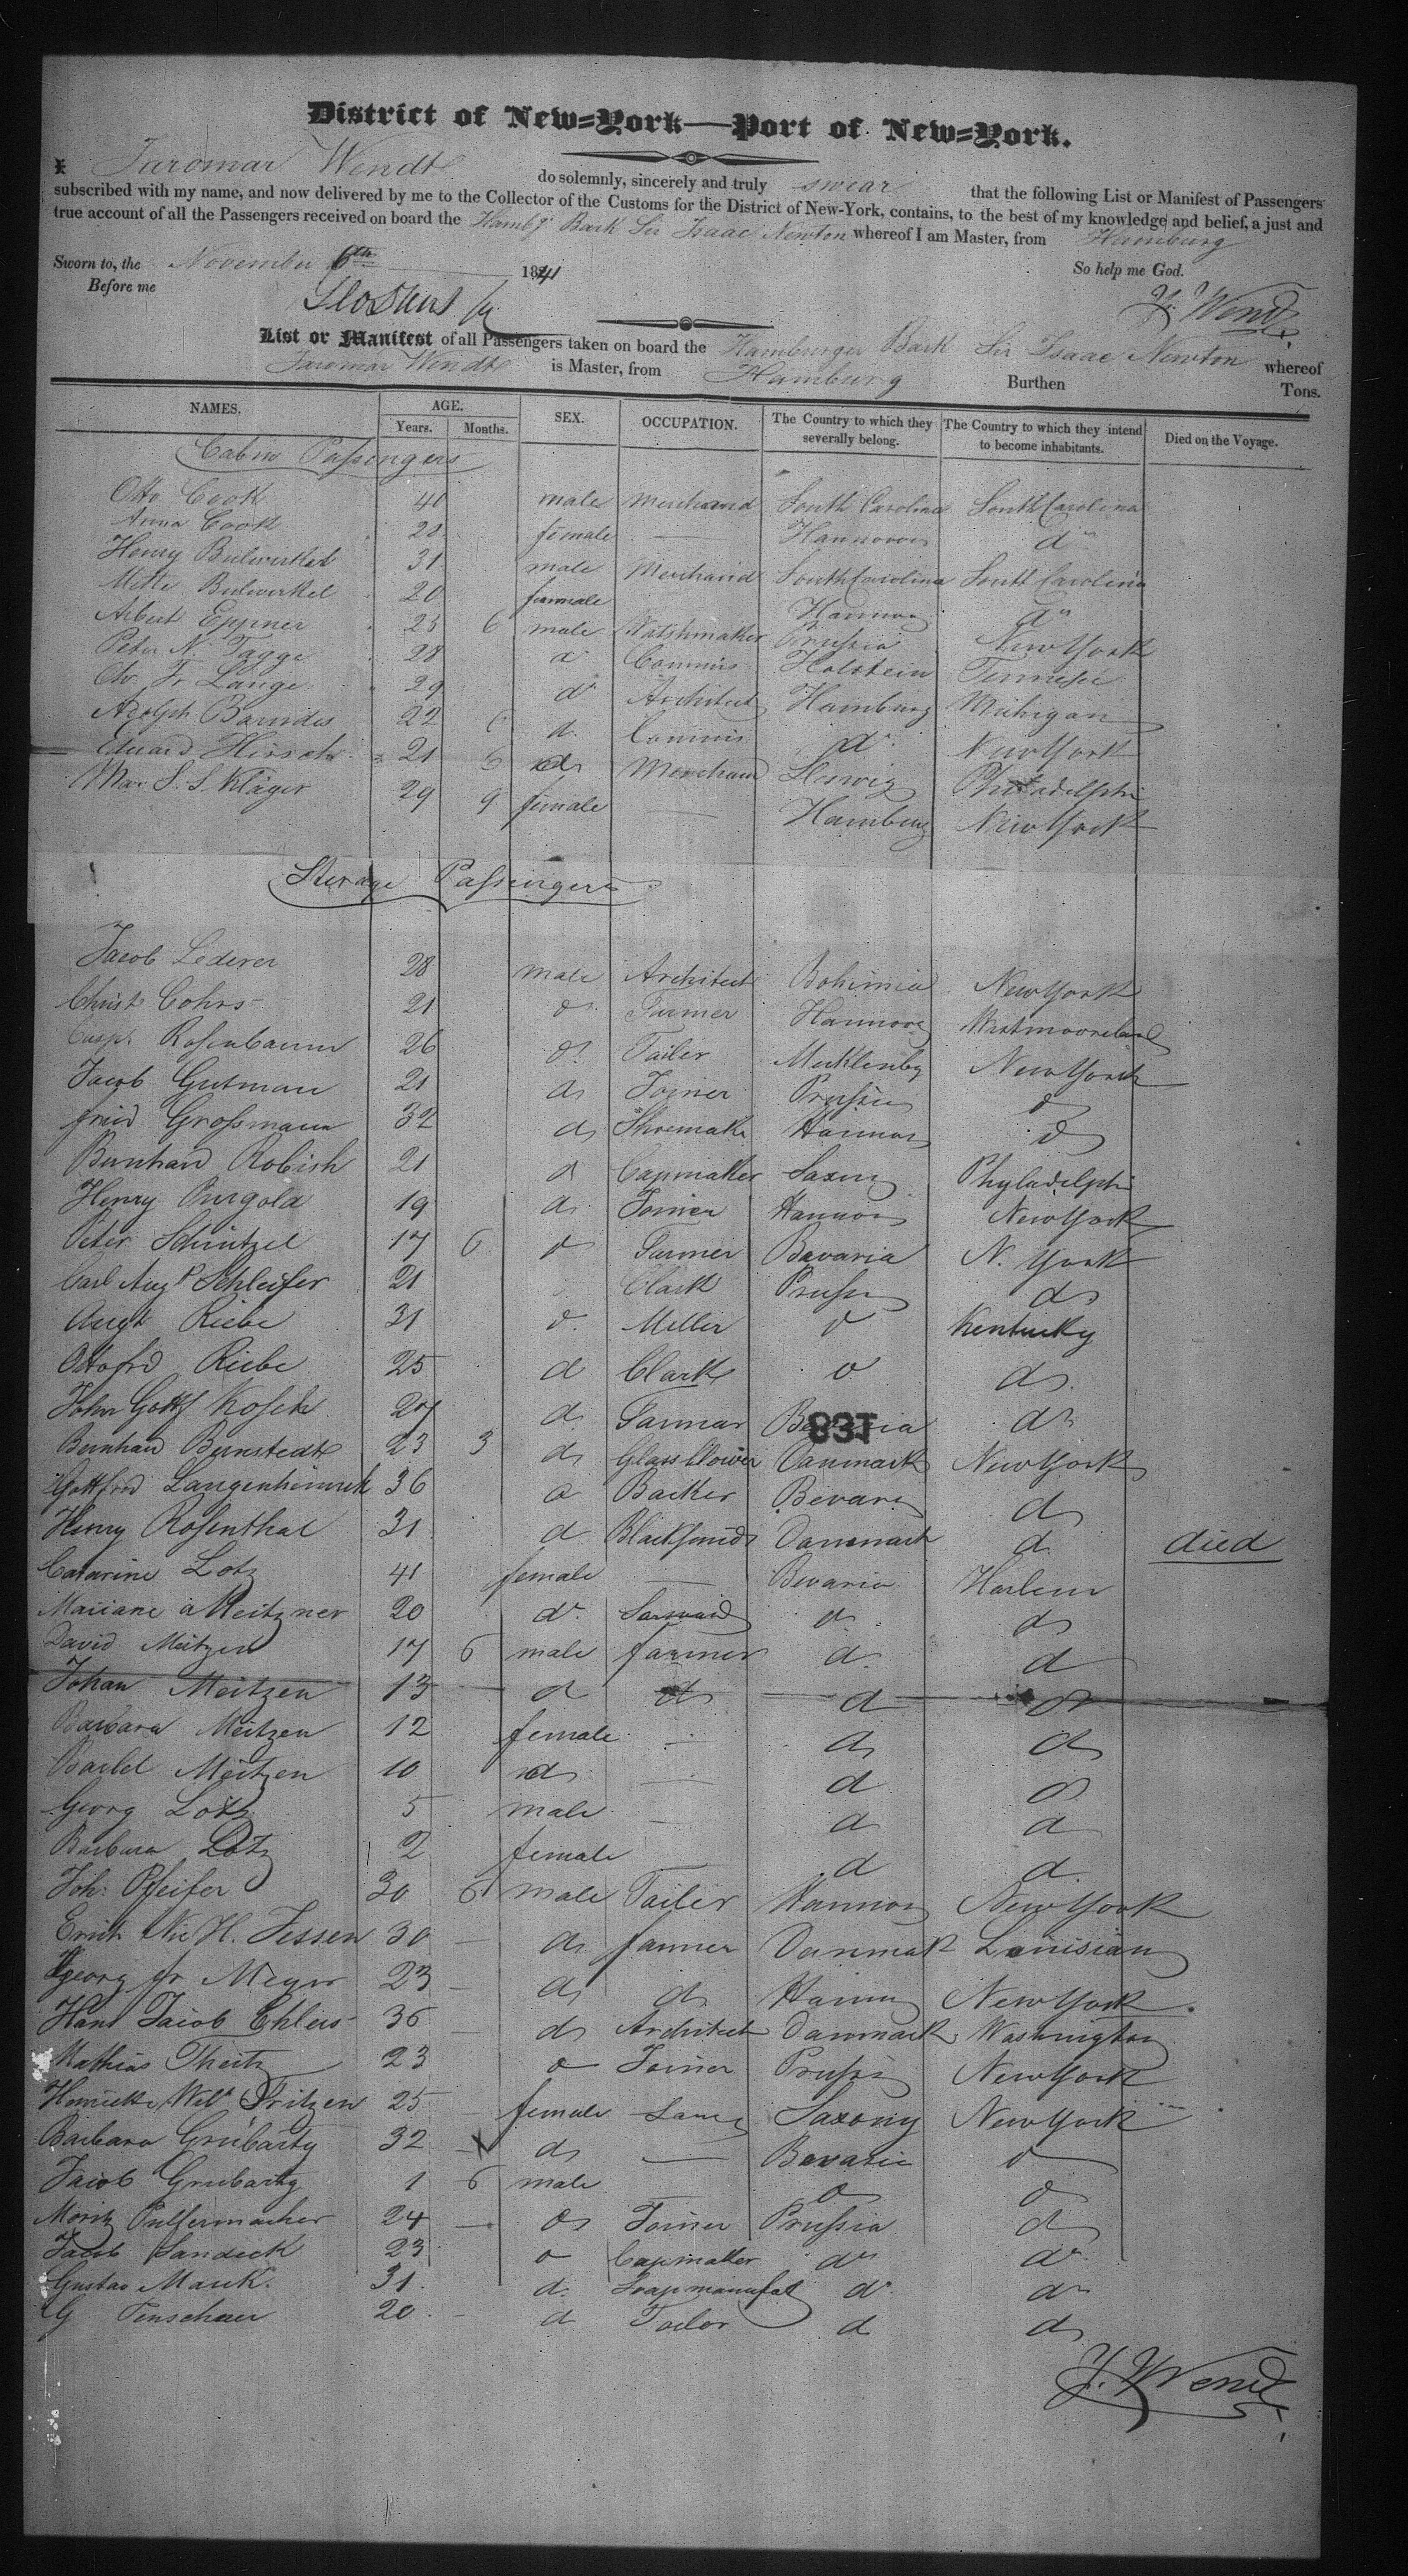 District of New-York—Port of New-York.
I, Jaromar Wendt do solemnly, sincerely and truly swear that the following List or Manifest of Passengers
subscribed with my name, and now delivered by me to the Collector of the Customs for the District of New-York, contains, to the best of my knowledge and belief, a just and
true account of all the Passengers received on board the Hambg Bark Sir Isaac Newton whereof I am Master, from Hamburg
Sworn to, the November 6th 1841 So help me God.
Before me J. Wendt
List or Manifest of all Passengers taken on board the Hamburger Bark Sir Isaac Newton whereof
Jaromar Wendt is Master, from Hamburg Burthen Tons.
NAMES. AGE. Years. Months. SEX. OCCUPATION. The Country to which they severally belong. The Country to which they intend to become inhabitants. Died on the Voyage.
Cabin Passengers
Otto Cook 40 male Merchand South Carolina South Carolina
Anna Cook 28 female — Hannover do
Henry Bulwinkel 31 male Merchand South Carolina South Carolina
Mette Bulwinkel 20 femmale Hannov do
Arbert Eppner 25 6 male Watshmaker Prussia New York
Peter N. Tagge 28 d Commis Holstein Tennesee
Chr. Fr. Lange 29 do Architect Hamburg Michigan
Adolph Barndes 22 6 d. Commis do. New York
Eduard Hirsch 21 6 do Merchand Sleswig Philadelphi
S. S. Kläger 29 9 female — Hamburg New York
Sterage Passengers
Jacob Lederer 28 male Architect Bohimia New York
Christ Cohrs 21 d. Farmer Hannov Westmooreland
Casp. Rosenbaum 26 d. Tailer Mecklenbg New York
Jacob Gutman 21 do Joiner Prussia d
fried Grossmann 32 do Shoemake Hannov do
Bernhard Robish 21 d Capmaker Saxony Phyladelphi
Henry Purgold 19 d. Joiner Hannov New York
Peter Schintzel 17 6 d Farmer Bavaria N. York
Carl Augt Schleifer 21 Clark Pruss do
Augt Riebe 31 d. Miller d Kentucky
Ottofrd Riebe 25 d Clark d do.
John Gottf Kosch 27 d. Farmar Bavaria do
Bernhard Bernstedt 23 3 do Glassblower Danmark New York
Gottfrid Langenheimrich 36 d Backer Bevary do
Henry Rosenthal 31 d Blacksmid Danmark d. died
Catarine Lotz 41 female — Bevaria Harlem
Mariane Meitzner 20 do. d. do
David Meitzen 17 6 male farmer d. d
Johan Meitzen 13 d do d d
Barbara Meitzen 12 female — do do
Meitzen 10 do — d d
Georg Lotz 5 male — d d
Barbara Lotz 2 female d d.
Joh. Pfeifer 30 6 male Tailer Hannov New York
Erich Nic H. Jessen 30 — do farmer Danmak Louisian
Georg fr Meyer 23 — do do Hannv New York.
Hans Jacob Ehlers 36 do Architect Danmark Washington
Mathias Theitz 23 d Joiner Prussi New York
Henriette Wilh Fritzen 25 female Saxony New York
Barbara Grübartg 32 do — Bavaria d
Jacob Grubartg 1 6 male d d
Moritz Pulfermacher 24 — do Joiner Prussia do
Jacob Landeck 23 d Capmaker do do.
Gustav Mauk. 31. d. Soapmanufat do do
G 20. — d Tailor d do
J. Wendt